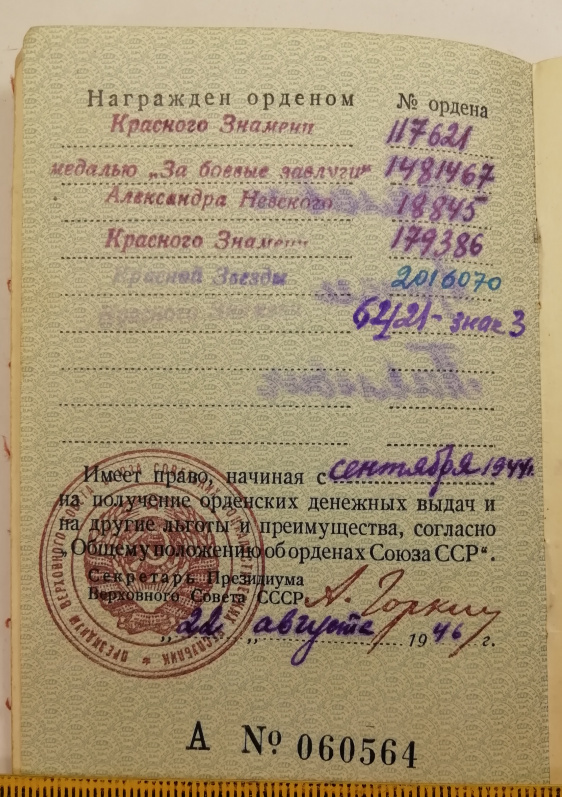 Награжден орденом № ордена
Красного Знамени 117621
медалью „За боевые заслуги" 1481467
Александра Невского 18845
Красного Знамени 179386
Красной Звезды 2016070
Красного Знамени 62/21 - знак 3
Имеет право, начиная с сентября 1944г.
на получение орденских денежных выдач и
на другие льготы и преимущества, согласно
„Общему положению об орденах Союза ССР“.
Секретарь Президиума
Верховного Совета СССР А. Горкин
„22„ августа 1946 г.
А № 060564